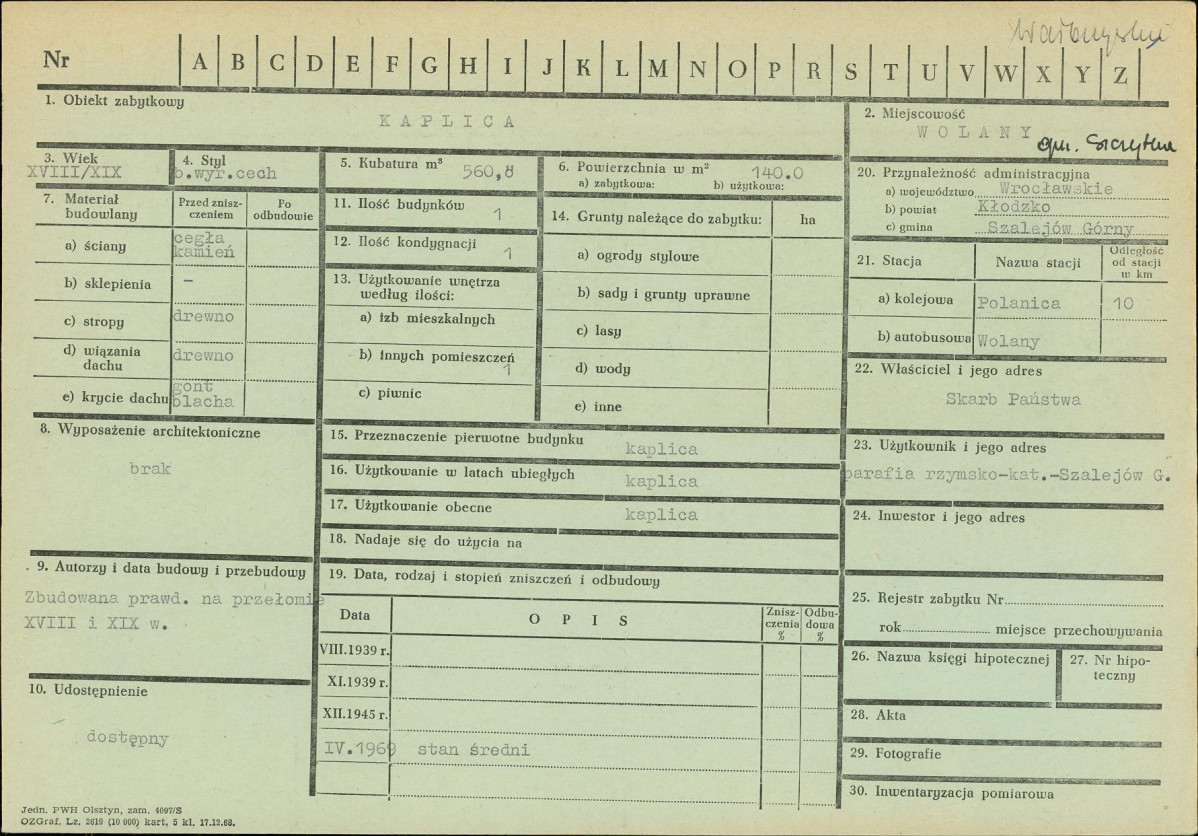 Wałbrzyskie
Nr A B C D E F G H I J K L M N O P R S T U V W X Y Z
1. Obiekt zabytkowy
KAPLICA
2. Miejscowość
WOLANY
gm. Szczytna
3. Wiek
XVIII/XIX
4. Styl
b.wyr.cech
5. Kubatura m³ 560,8
6. Powierzchnia w m² 140.0
a) zabytkowa: b) użytkowa:
7. Materiał budowlany
Przed zniszczeniem
Po odbudowie
a) ściany cegła kamień
b) sklepienia -
c) stropy drewno
d) wiązania dachu drewno
e) krycie dachu gont blacha
8. Wyposażenie architektoniczne
brak
9. Autorzy i data budowy i przebudowy
Zbudowana prawd. na przełomie
XVIII i XIX w.
10. Udostępnienie
dostępny
11. Ilość budynków 1
12. Ilość kondygnacji 1
13. Użytkowanie wnętrza
według ilości:
a) izb mieszkalnych
b) innych pomieszczeń 1
c) piwnic
14. Grunty należące do zabytku: ha
a) ogrody stylowe
b) sady i grunty uprawne
c) lasy
d) wody
e) inne
15. Przeznaczenie pierwotne budynku kaplica
16. Użytkowanie w latach ubiegłych kaplica
17. Użytkowanie obecne kaplica
18. Nadaje się do użycia na
19. Data, rodzaj i stopień zniszczeń i odbudowy
Data OPIS Zniszczenia % Odbudowa %
VIII.1939 r.
XI.1939 r.
XII.1945 r.
IV.1969 stan średni
20. Przynależność administracyjna
a) województwo Wrocławskie
b) powiat Kłodzko
c) gmina Szalejów Górny
21. Stacja Nazwa stacji Odległość od stacji w km
a) kolejowa Polanica 10
b) autobusowa Wolany
22. Właściciel i jego adres
Skarb Państwa
23. Użytkownik i jego adres
parafia rzymsko-kat.-Szalejów G.
24. Inwestor i jego adres
25. Rejestr zabytku Nr
rok miejsce przechowywania
26. Nazwa księgi hipotecznej
27. Nr hipoteczny
28. Akta
29. Fotografie
30. Inwentaryzacja pomiarowa
Jedn. PWH Olsztyn, zam. 4097/S
OZGraf. Lz. 2619 (10 000) kart. 5 kl. 17.12.68.